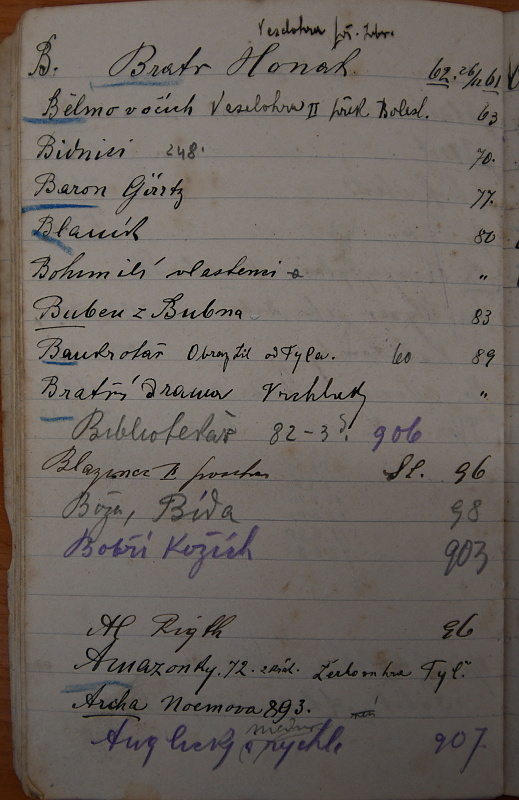 Veselohra
B. Bratr Honák 62. 26/12 61
Bělmo v očích Veselohra II přel. Bolesl. 63
Bídníci 248. 70.
Baron Görtz 77.
Blaník 80
Bohumilí vlastenci „
Buben z Bubna 83
Bankrotář Obraz od Tyla. 60 89
Bratří drama Vrchlický „
Bibliotekář 82-3 906
Blázinec II poschodí 96
Bůza, Bída 98
Bobří Kožich 903
Al Rigth 96
Amazonky. 72. Tyl.
Archa Noemova 893.
Anglicky rychle 907